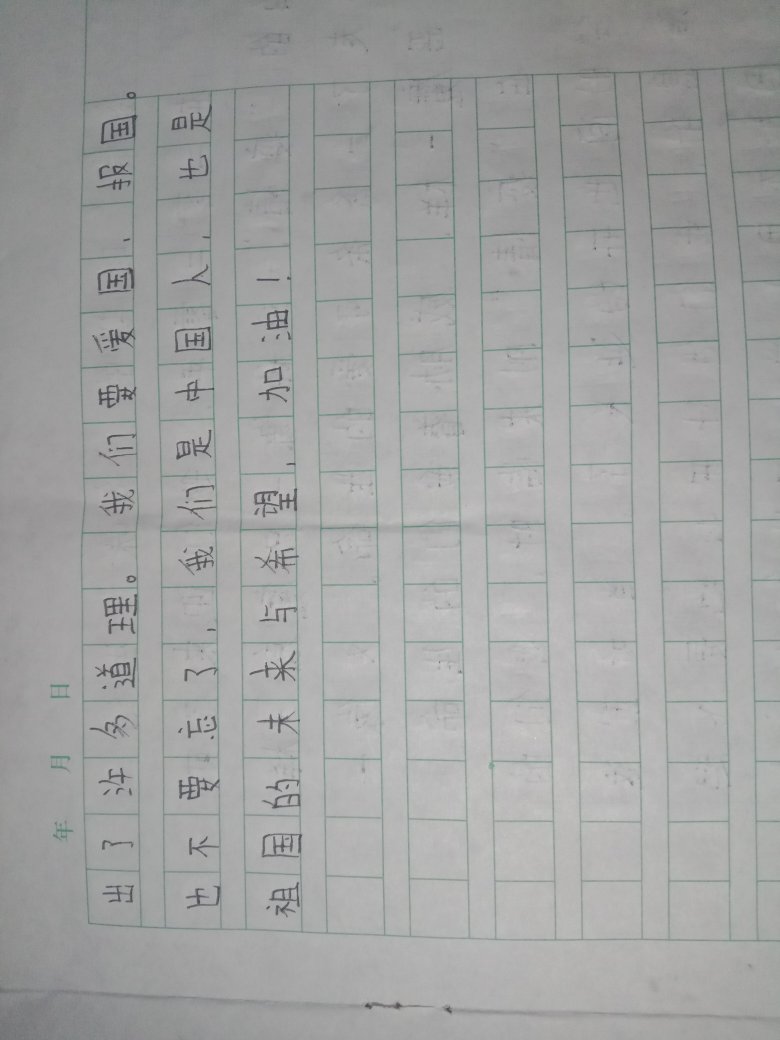 年 月 日
出了许多道理。我们要爱国、报国。
也不要忘了,我们是中国人,也是
祖国的未来与希望,加油!